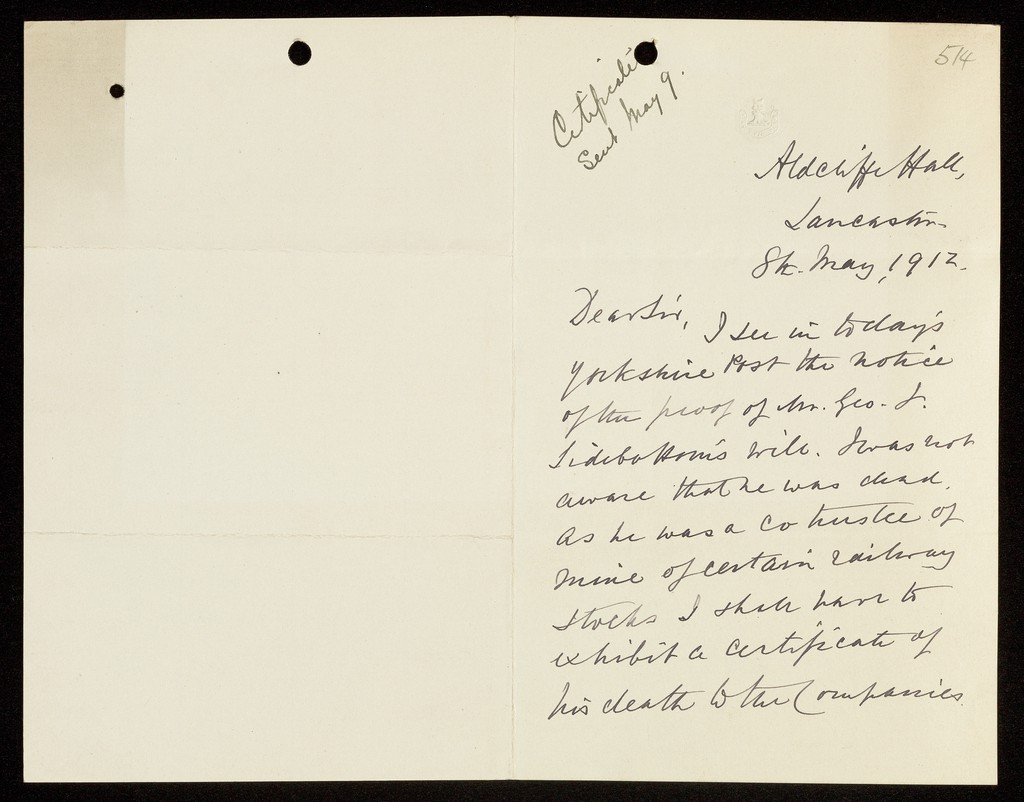 514
Certificate
Sent May 9.
Aldcliffe Hall,
Lancaster.
8th. May, 1912.
Dear Sir,
I see in to day's
Yorkshire Post the notice
of the proof of Mr. Geo. J.
Sidebottom's will. I was not
aware that he was dead.
As he was a co trustee of
mine of certain railway
stocks I shall have to
exhibit a certificate of
his death to the Companies